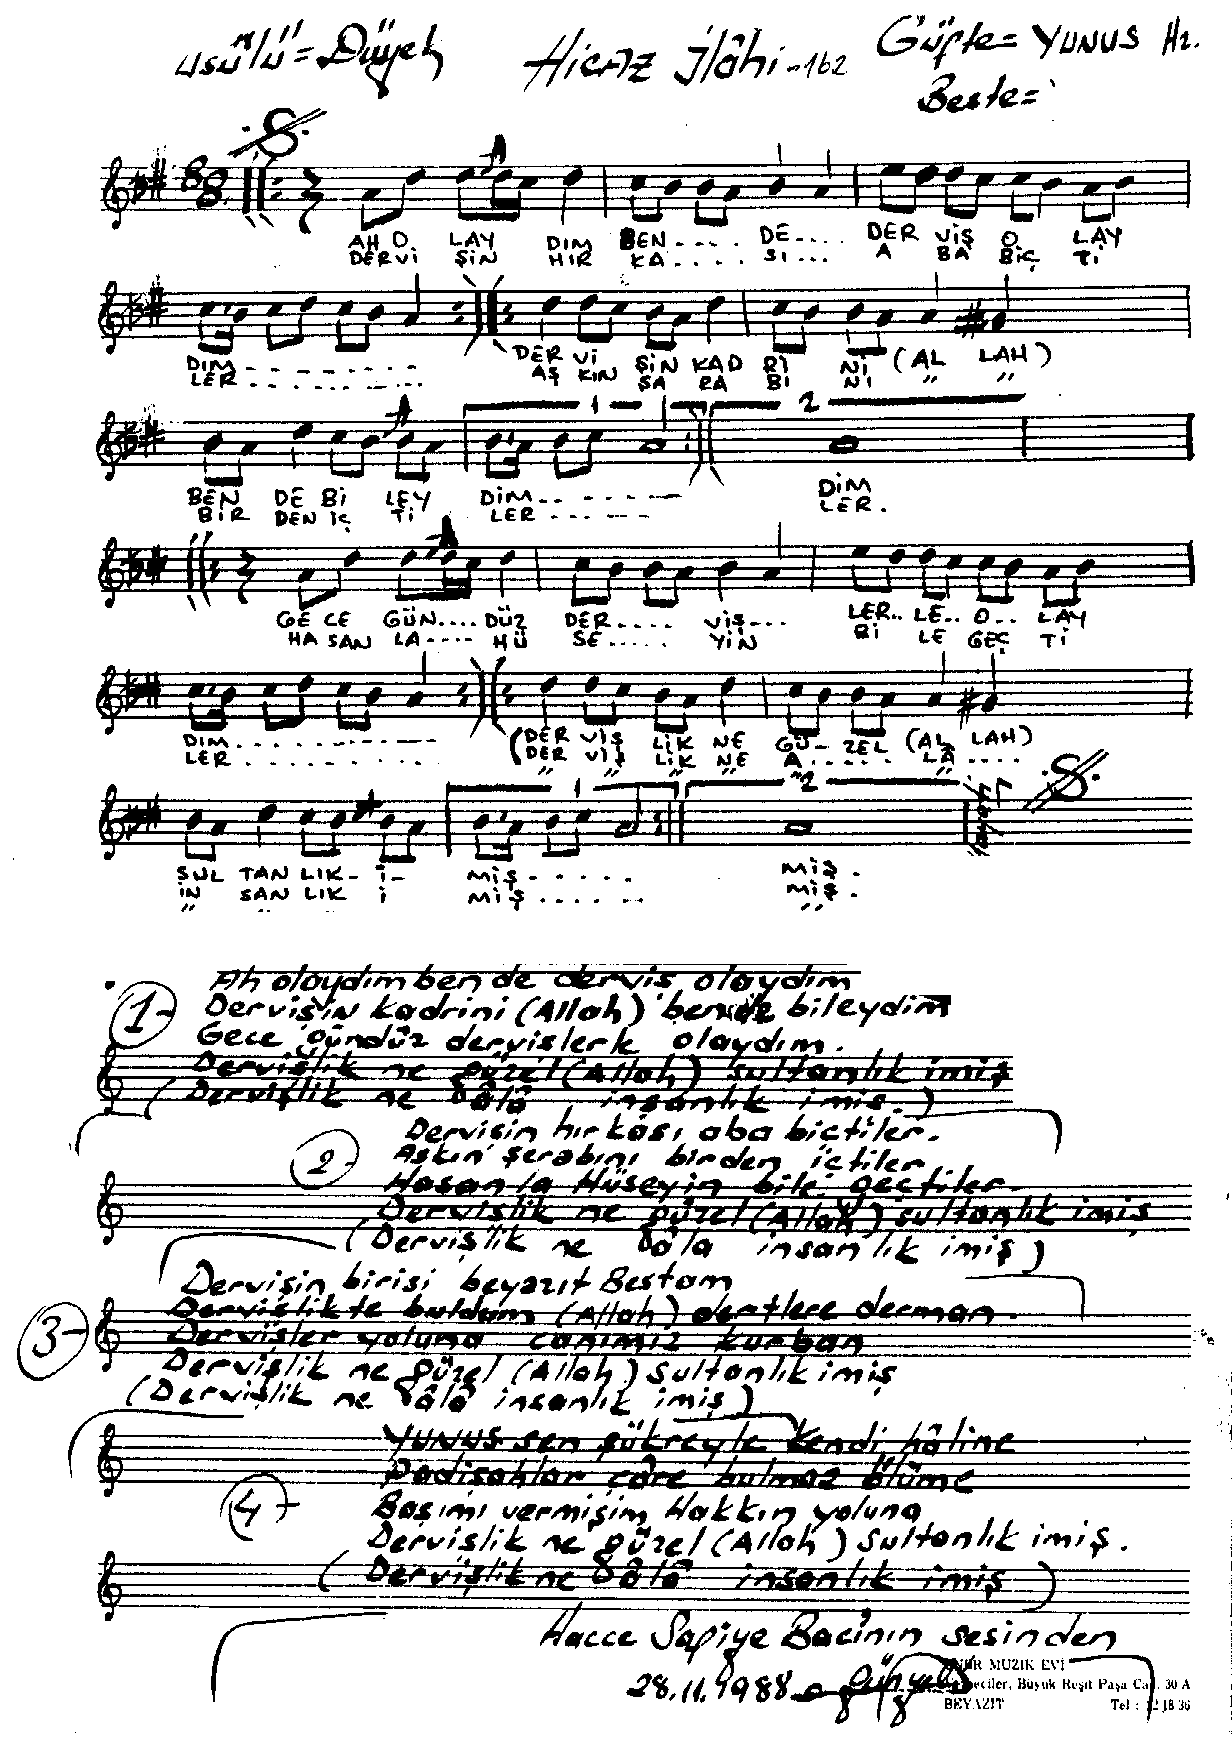 usûlü = Düyek Hicaz İlâhi - 162 Güfte = YUNUS Hz.
Beste =
AH O. LAY DIM BEN.... DE.... DER VİŞ O LAY
DERVİ ŞİN HIR KA.... SI... A BA BİÇ Tİ
DIM - - - - - - - - DER Vİ ŞİN KAD Rİ Nİ (AL LAH)
LER - - - - - - - - AŞ KIN ŞA RA BI NI " "
1 2
BEN DE Bİ LEY DİM - - - - - - DİM
BİR DEN İÇ Tİ LER - - - - - LER.
GE CE GÜN.... DÜZ DER..... VİŞ... LER.. LE.. O.. LAY
HA SAN LA.... HÜ SE.... YİN Bİ LE GEÇ Tİ
DIM - - - - - - - - - (DER VİŞ LİK NE GÜ - ZEL (AL LAH)
LER - - - - - - - - (DER VİŞ LİK NE A..... LA ....
1 2
SUL TAN LIK - İ - MİŞ - - - - - - MİŞ.
İN SAN LIK İ MİŞ - - - - - MİŞ.
Ah olaydım ben de derviş olaydım
1- Dervişin kadrini (Allah) bende bileydim
Gece gündüz dervişlerle olaydım.
Dervişlik ne güzel (Allah) sultanlık imiş
(Dervişlik ne âlâ insanlık imiş.)
Dervişin hırkası aba biçtiler.
2- Aşkın şerabını birden içtiler
Hasan la Hüseyin bile geçtiler.
Dervişlik ne güzel (Allah) sultanlık imiş
(Dervişlik ne âla insanlık imiş)
Dervişin birisi beyazıt Bestam
Dervişlikte buldum (Allah) dertlere derman.
3- Dervişler yoluna canımız kurban
Dervişlik ne güzel (Allah) Sultanlık imiş
(Dervişlik ne âlâ insanlık imiş)
YUNUS sen şükreyle kendi hâline
Padişahlar çâre bulmaz ölüme
4- Başımı vermişim Hakkın yoluna
Dervişlik ne güzel (Allah) Sultanlık imiş.
(Dervişlik ne âlâ insanlık imiş)
Hacce Safiye Bacı'nın sesinden
28.11.1988
MÜZİK EVİ
Büyük Reşit Paşa Cad. 30 A
BEYAZIT Tel :